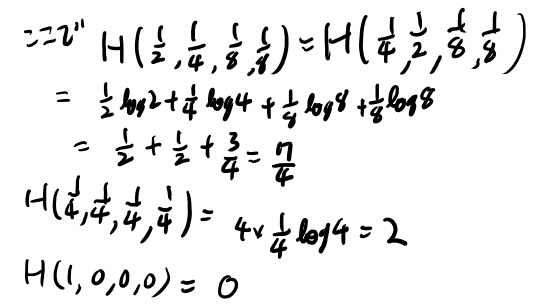 H(1/2, 1/4, 1/8, 1/8) = H(1/4, 1/2, 1/8, 1/8)
= 1/2 log2 + 1/4 log4 + 1/8 log8 + 1/8 log8
= 1/2 + 1/2 + 3/4 = 7/4
H(1/4, 1/4, 1/4, 1/4) = 4 × 1/4 log4 = 2
H(1, 0, 0, 0) = 0